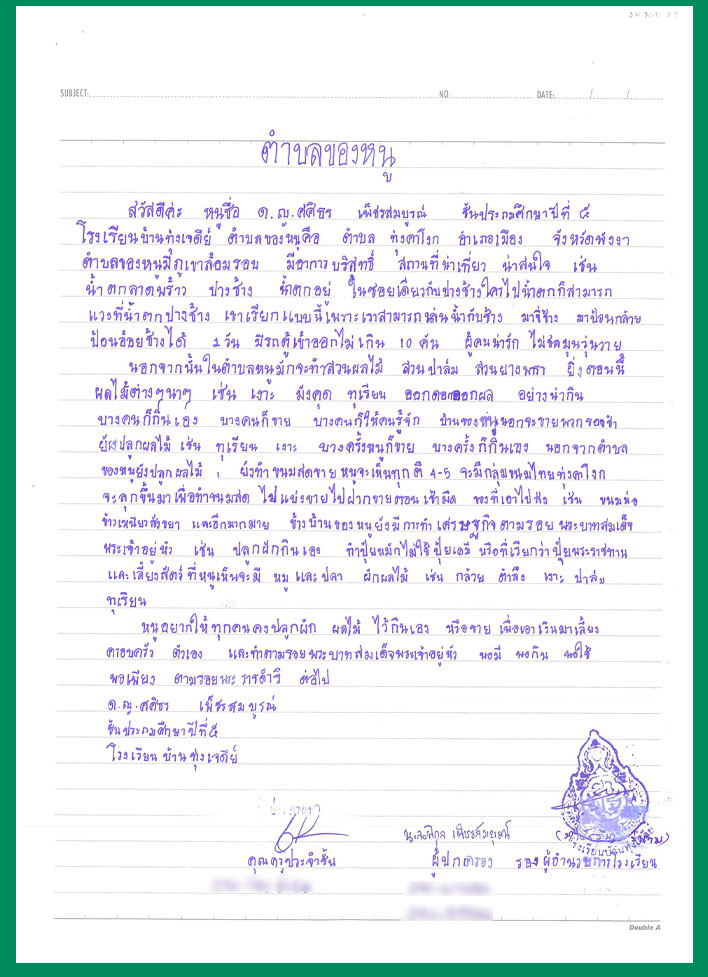 SUBJECT: NO: DATE: / /
ตำบลของหนู
สวัสดีค่ะ หนูชื่อ ด.ญ.ศศิธร เพ็ชรสมบูรณ์ ชั้นประถมศึกษาปีที่ ๕
โรงเรียนบ้านทุ่งเจดีย์ ตำบลของหนูคือ ตำบล ทุ่งคาโงก อำเภอเมือง จังหวัดพังงา
ตำบลของหนูมีภูเขาล้อมรอบ มีอากาศบริสุทธิ์ สถานที่น่าเที่ยว น่าสนใจ เช่น
น้ำตกลาดพร้าว ปางช้าง น้ำตกอยู่ ในซอยเดียวกับปางช้างใครไปน้ำตกก็สามารถ
แวะที่น้ำตกปางช้าง เขาเรียกแบบนี้เพราะเขาสามารถเล่นน้ำกับช้าง มาขี่ช้าง มาป้อนกล้วย
ป้อนอ้อยช้างได้ 1 วัน มีรถตู้เข้าออกไม่เกิน 10 คัน ผู้คนน่ารัก ไม่ชุลมุนวุ่นวาย
นอกจากนั้นในตำบลหนูมักจะทำสวนผลไม้ สวนปาล์ม สวนยางพารา ยิ่งตอนนี้
ผลไม้ต่างๆนาๆ เช่น เงาะ มังคุด ทุเรียน ออกดอกออกผล อย่างน่ากิน
บางคนก็กินเอง บางคนก็ขาย บางคนก็ให้คนรู้จัก บ้านของหนูนอกจะขายพวกของชำ
ยังปลูกผลไม้ เช่น ทุเรียน เงาะ บางครั้งหนูก็ขาย บางครั้งก็กินเอง นอกจากตำบล
ของหนูยังปลูกผลไม้ ยังทำขนมสดขาย หนูจะเห็นทุกตี 4-5 จะมีกลุ่มขนมไทยทุ่งคาโงก
จะลุกขึ้นมาเพื่อทำขนมสด ไปแบ่งขายไปฝากขายตอนเช้ามืด ของที่เอาไปส่ง เช่น ขนมห่อ
ข้าวเหนียวสังขยา และอีกมากมาย ข้างบ้านของหนูยังมีการทำเศรษฐกิจตามรอยพระบาทสมเด็จ
พระเจ้าอยู่หัว เช่น ปลูกผักกินเอง ทำปุ๋ยหมักไม่ใช้ปุ๋ยเคมี หรือที่เรียกว่าปุ๋ยพระราชทาน
และเลี้ยงสัตว์ที่หนูเห็นจะมี หมู และปลา ผักผลไม้ เช่น กล้วย ตำลึง เงาะ ปาล์ม
ทุเรียน
หนูอยากให้ทุกคนคงปลูกผัก ผลไม้ ไว้กินเอง หรือขาย เพื่อเอาเงินมาเลี้ยง
ครอบครัว ตัวเอง และทำตามรอยพระบาทสมเด็จพระเจ้าอยู่หัว พอมี พอกิน พอใช้
พอเพียง ตามรอยพระราชดำริ ต่อไป
ด.ญ.ศศิธร เพ็ชรสมบูรณ์
ชั้นประถมศึกษาปีที่๕
โรงเรียนบ้านทุ่งเจดีย์
เพ็ชรสมบูรณ์
คุณครูประจำชั้น ผู้ปกครอง รองผู้อำนวยการโรงเรียน
Double A